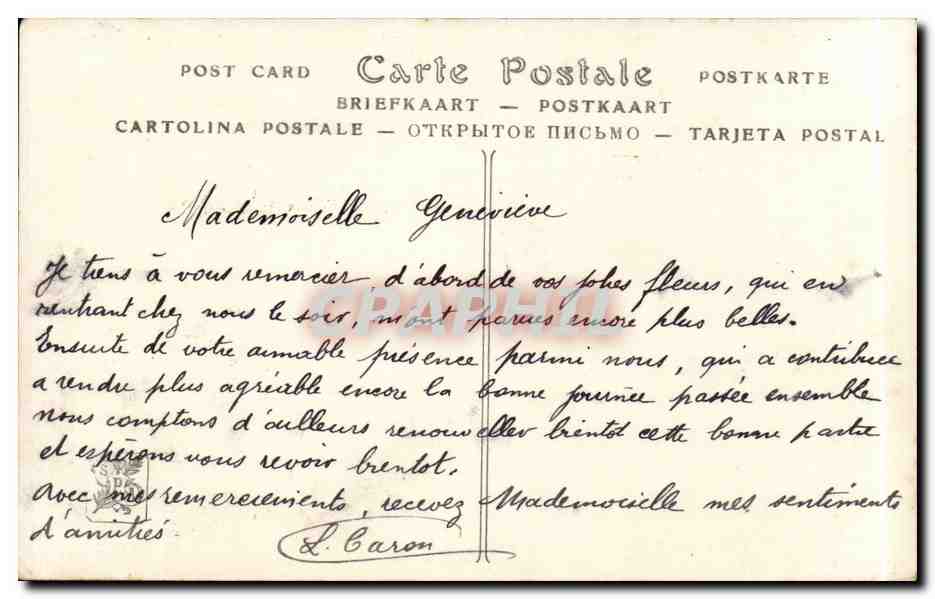 POST CARD Carte Postale POSTKARTE
BRIEFKAART — POSTKAART
CARTOLINA POSTALE — ОТКРЫТОЕ ПИСЬМО — TARJETA POSTAL
Mademoiselle Geneviève
Je tiens à vous remercier d'abord de vos jolies fleurs, qui en
rentrant chez nous le soir, m'ont parues encore plus belles.
Ensuite de votre aimable présence parmi nous, qui a contribuée
a rendre plus agréable encore la bonne journée passée ensemble
nous comptons d'ailleurs renouveller bientot cette bonne partie
et espérons vous revoir bientot.
Avec mes remerciements, recevez Mademoiselle mes sentiments
d'amitiés.
L. Caron
CPAPHIL